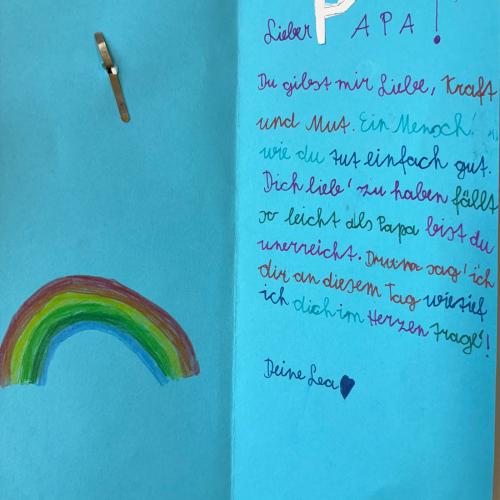 Lieber PAPA!
Du gibst mir Liebe, Kraft
und Mut. Ein Mensch!
wie du tut einfach gut.
Dich lieb' zu haben fällt
so leicht als Papa bist du
unerreicht. Drum sag' ich
dir an diesem Tag wie tief
ich dich im Herzen trage'!
Deine Lea